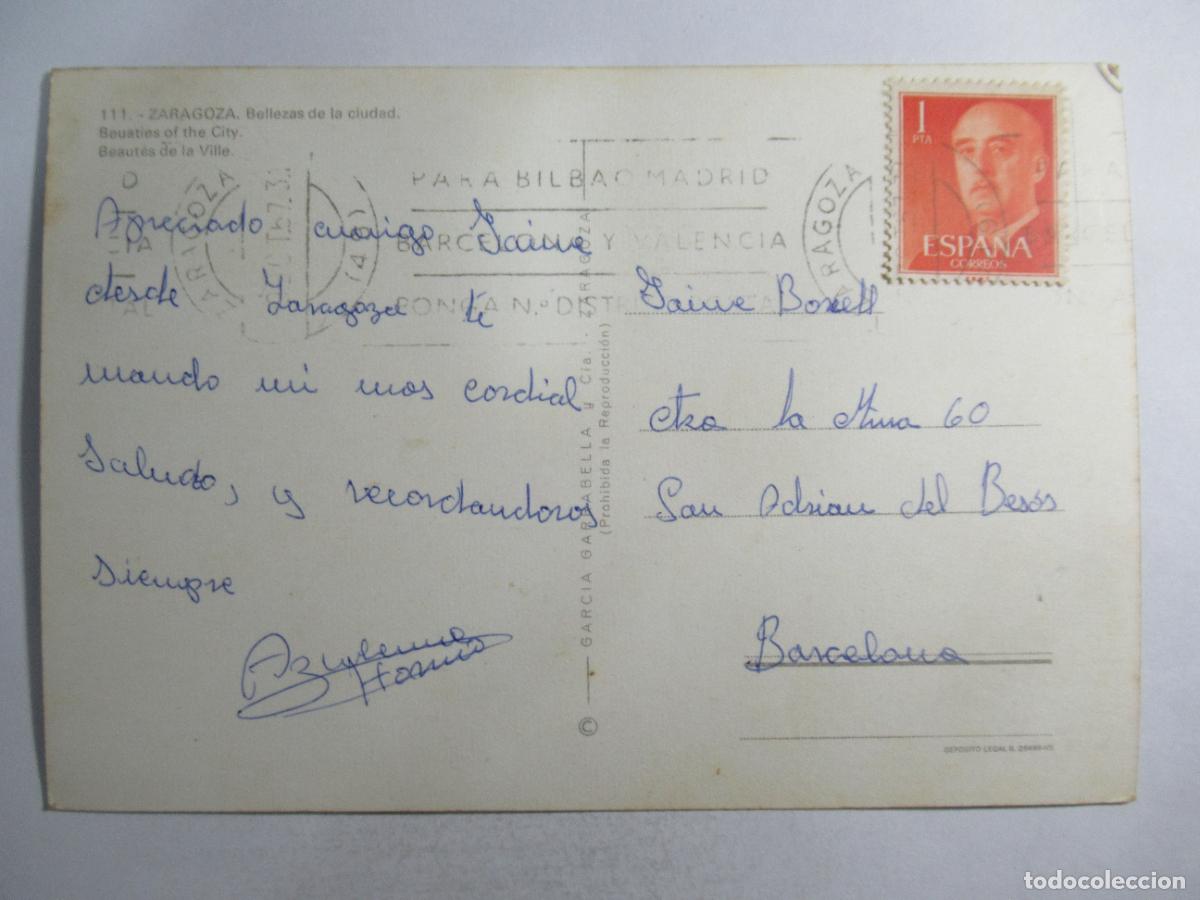 111. - ZARAGOZA. Bellezas de la ciudad.
Beuaties of the City.
Beautés de la Ville.
PARA BILBAO MADRID
BARCELONA Y VALENCIA
PONGA N.º DISTRITO POSTAL
ZARAGOZA
ZARAGOZA
Apreciado amigo Jaime
desde Zaragoza te
mando mi mas cordial
Saludo, y recordandoros
siempre
Azulema
GARCIA GARRABELLA y Cía. - ZARAGOZA
(Prohibida la Reproducción)
©
1
PTA
ESPAÑA
CORREOS
Jaime Bonell
ctra la Mina 60
San Adrian del Besós
Barcelona
DEPOSITO LEGAL B.
todocoleccion